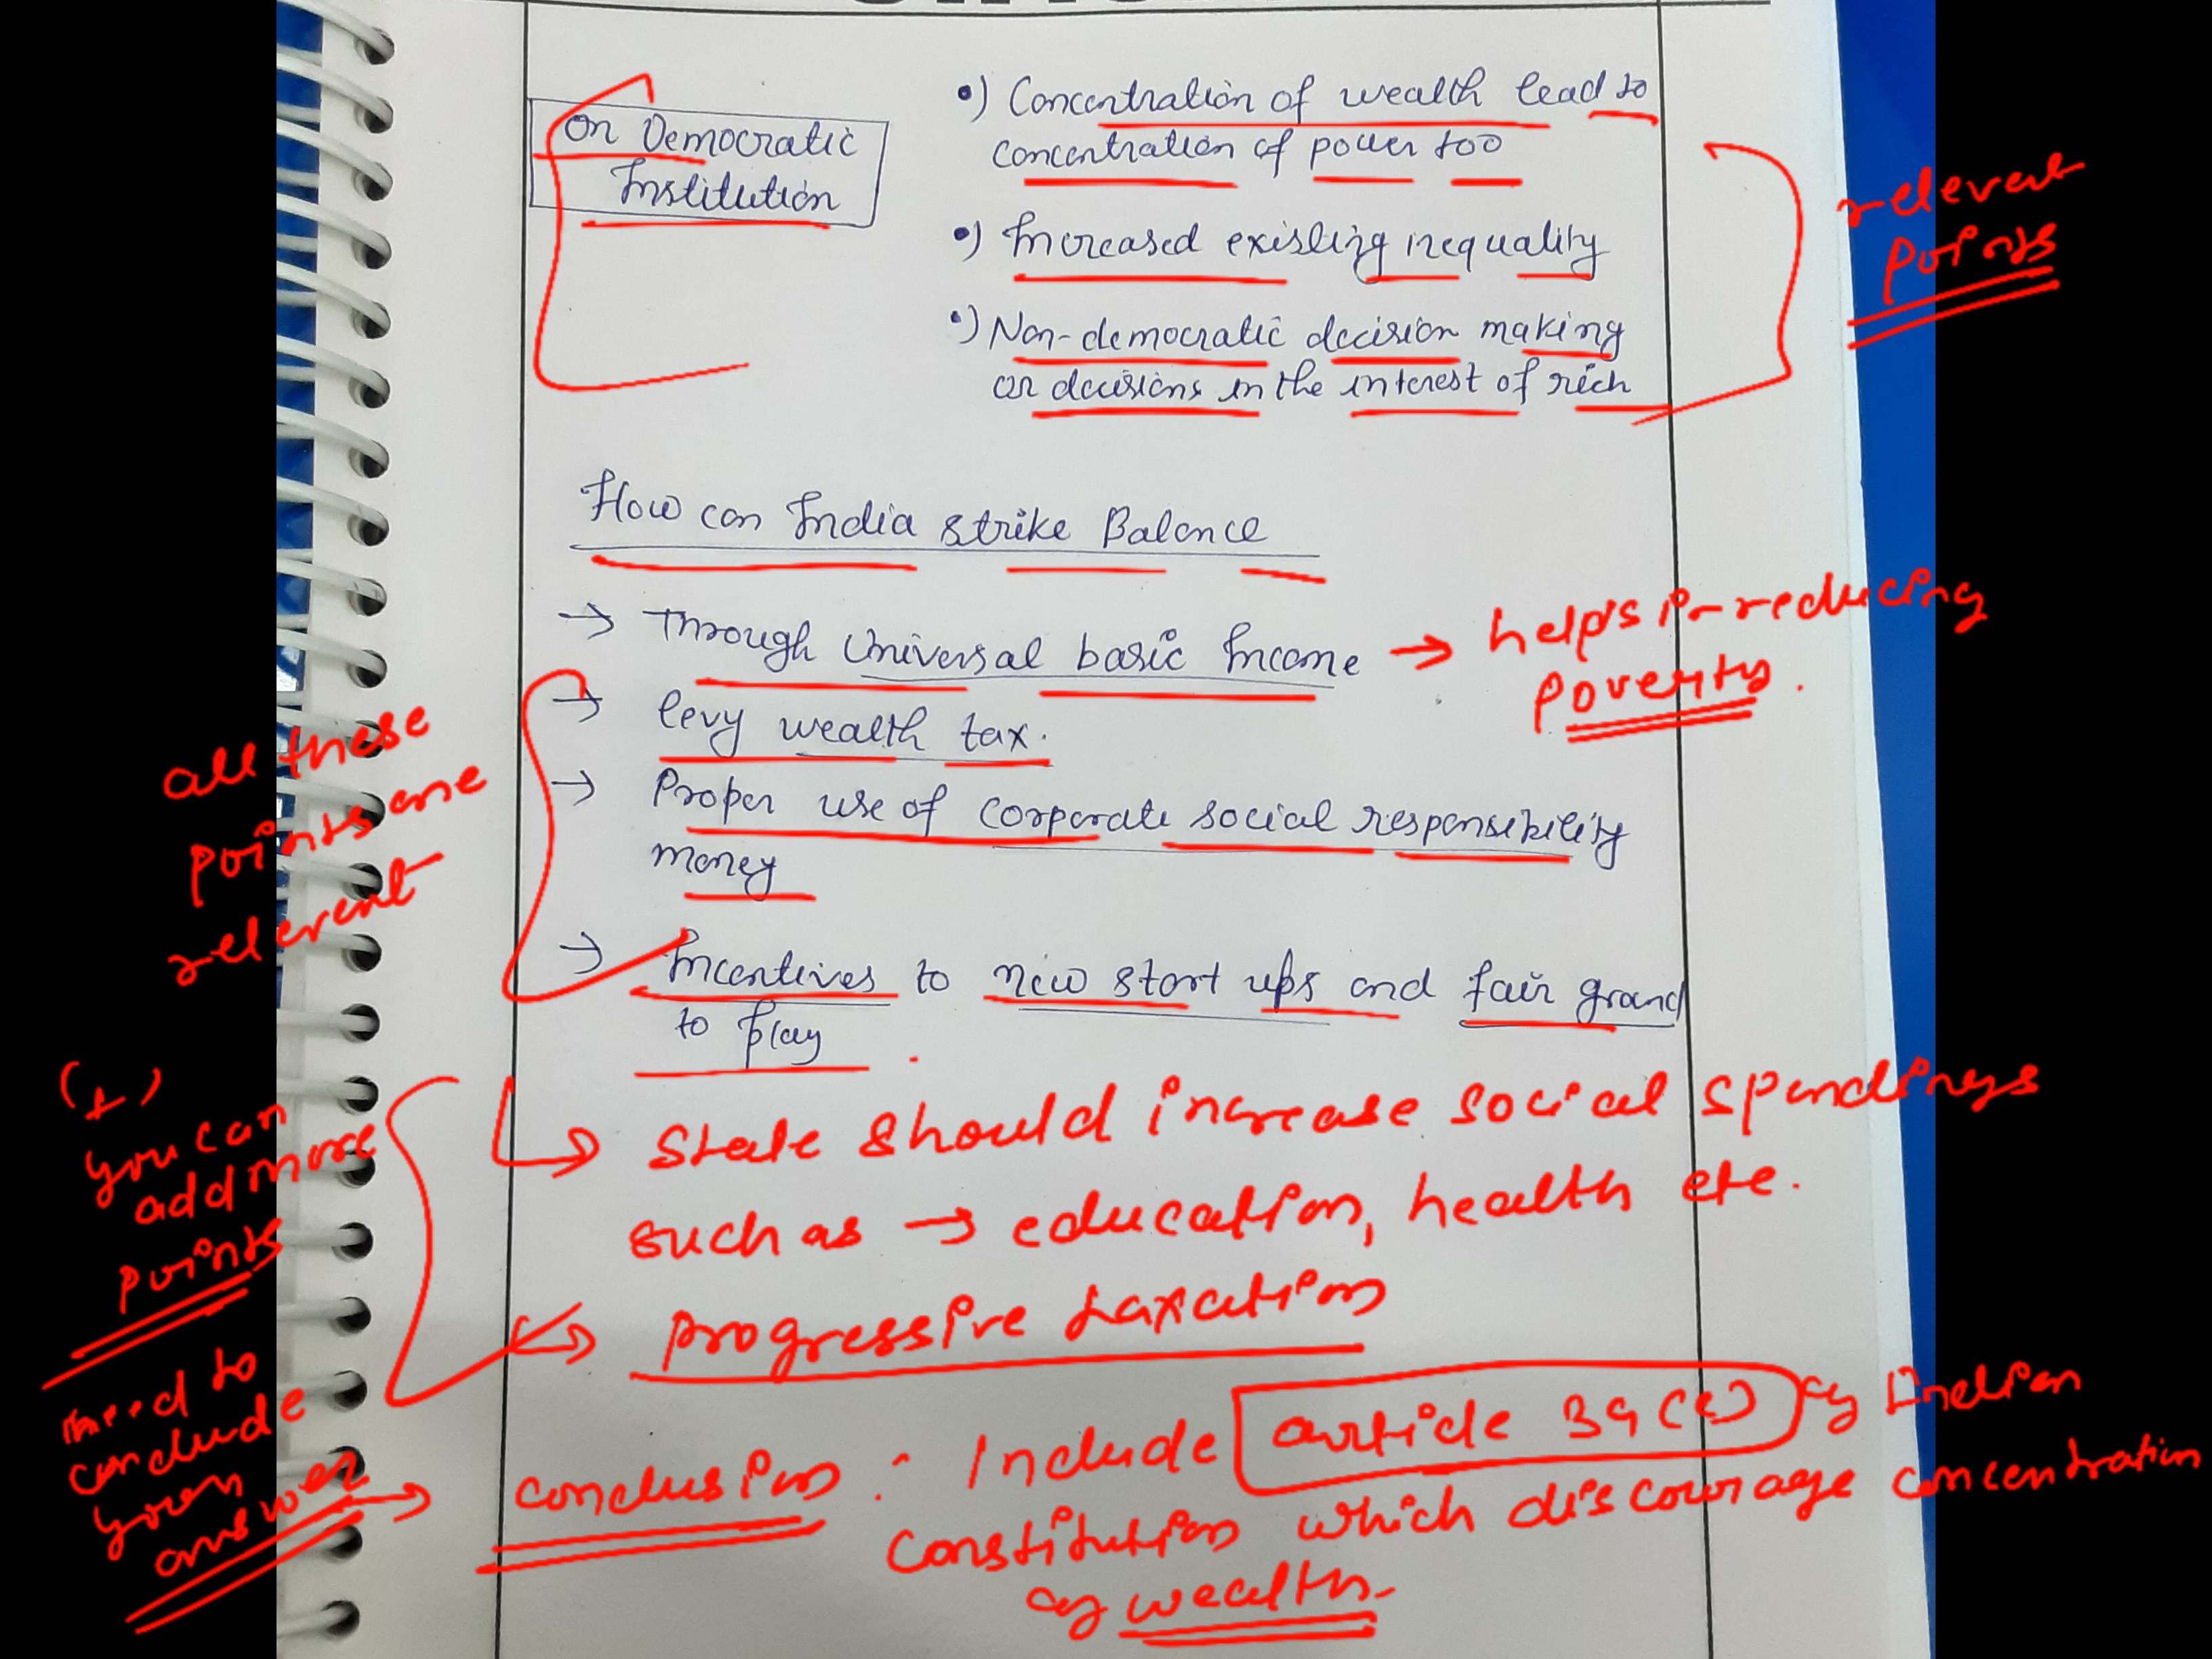 On Democratic
Institution
•) Concentration of wealth lead to
concentration of power too
•) Increased existing inequality
•) Non-democratic decision making
or decisions in the interest of rich
relevent
points
How can India strike Balance
→ Through Universal basic Income → helps in reducing
poverty.
→ levy wealth tax.
→ Proper use of corporate social responsibility
money
→ Incentives to new start ups and fair ground
to play
all these
points are
relevent
(+)
you can
add more
points
↳ State should increase social spendings
such as → education, health etc.
↳ progressive taxation
need to
conclude
your
answer →
conclusion : Include article 39(c) of Indian
constitution which discourage concentration
of wealth.